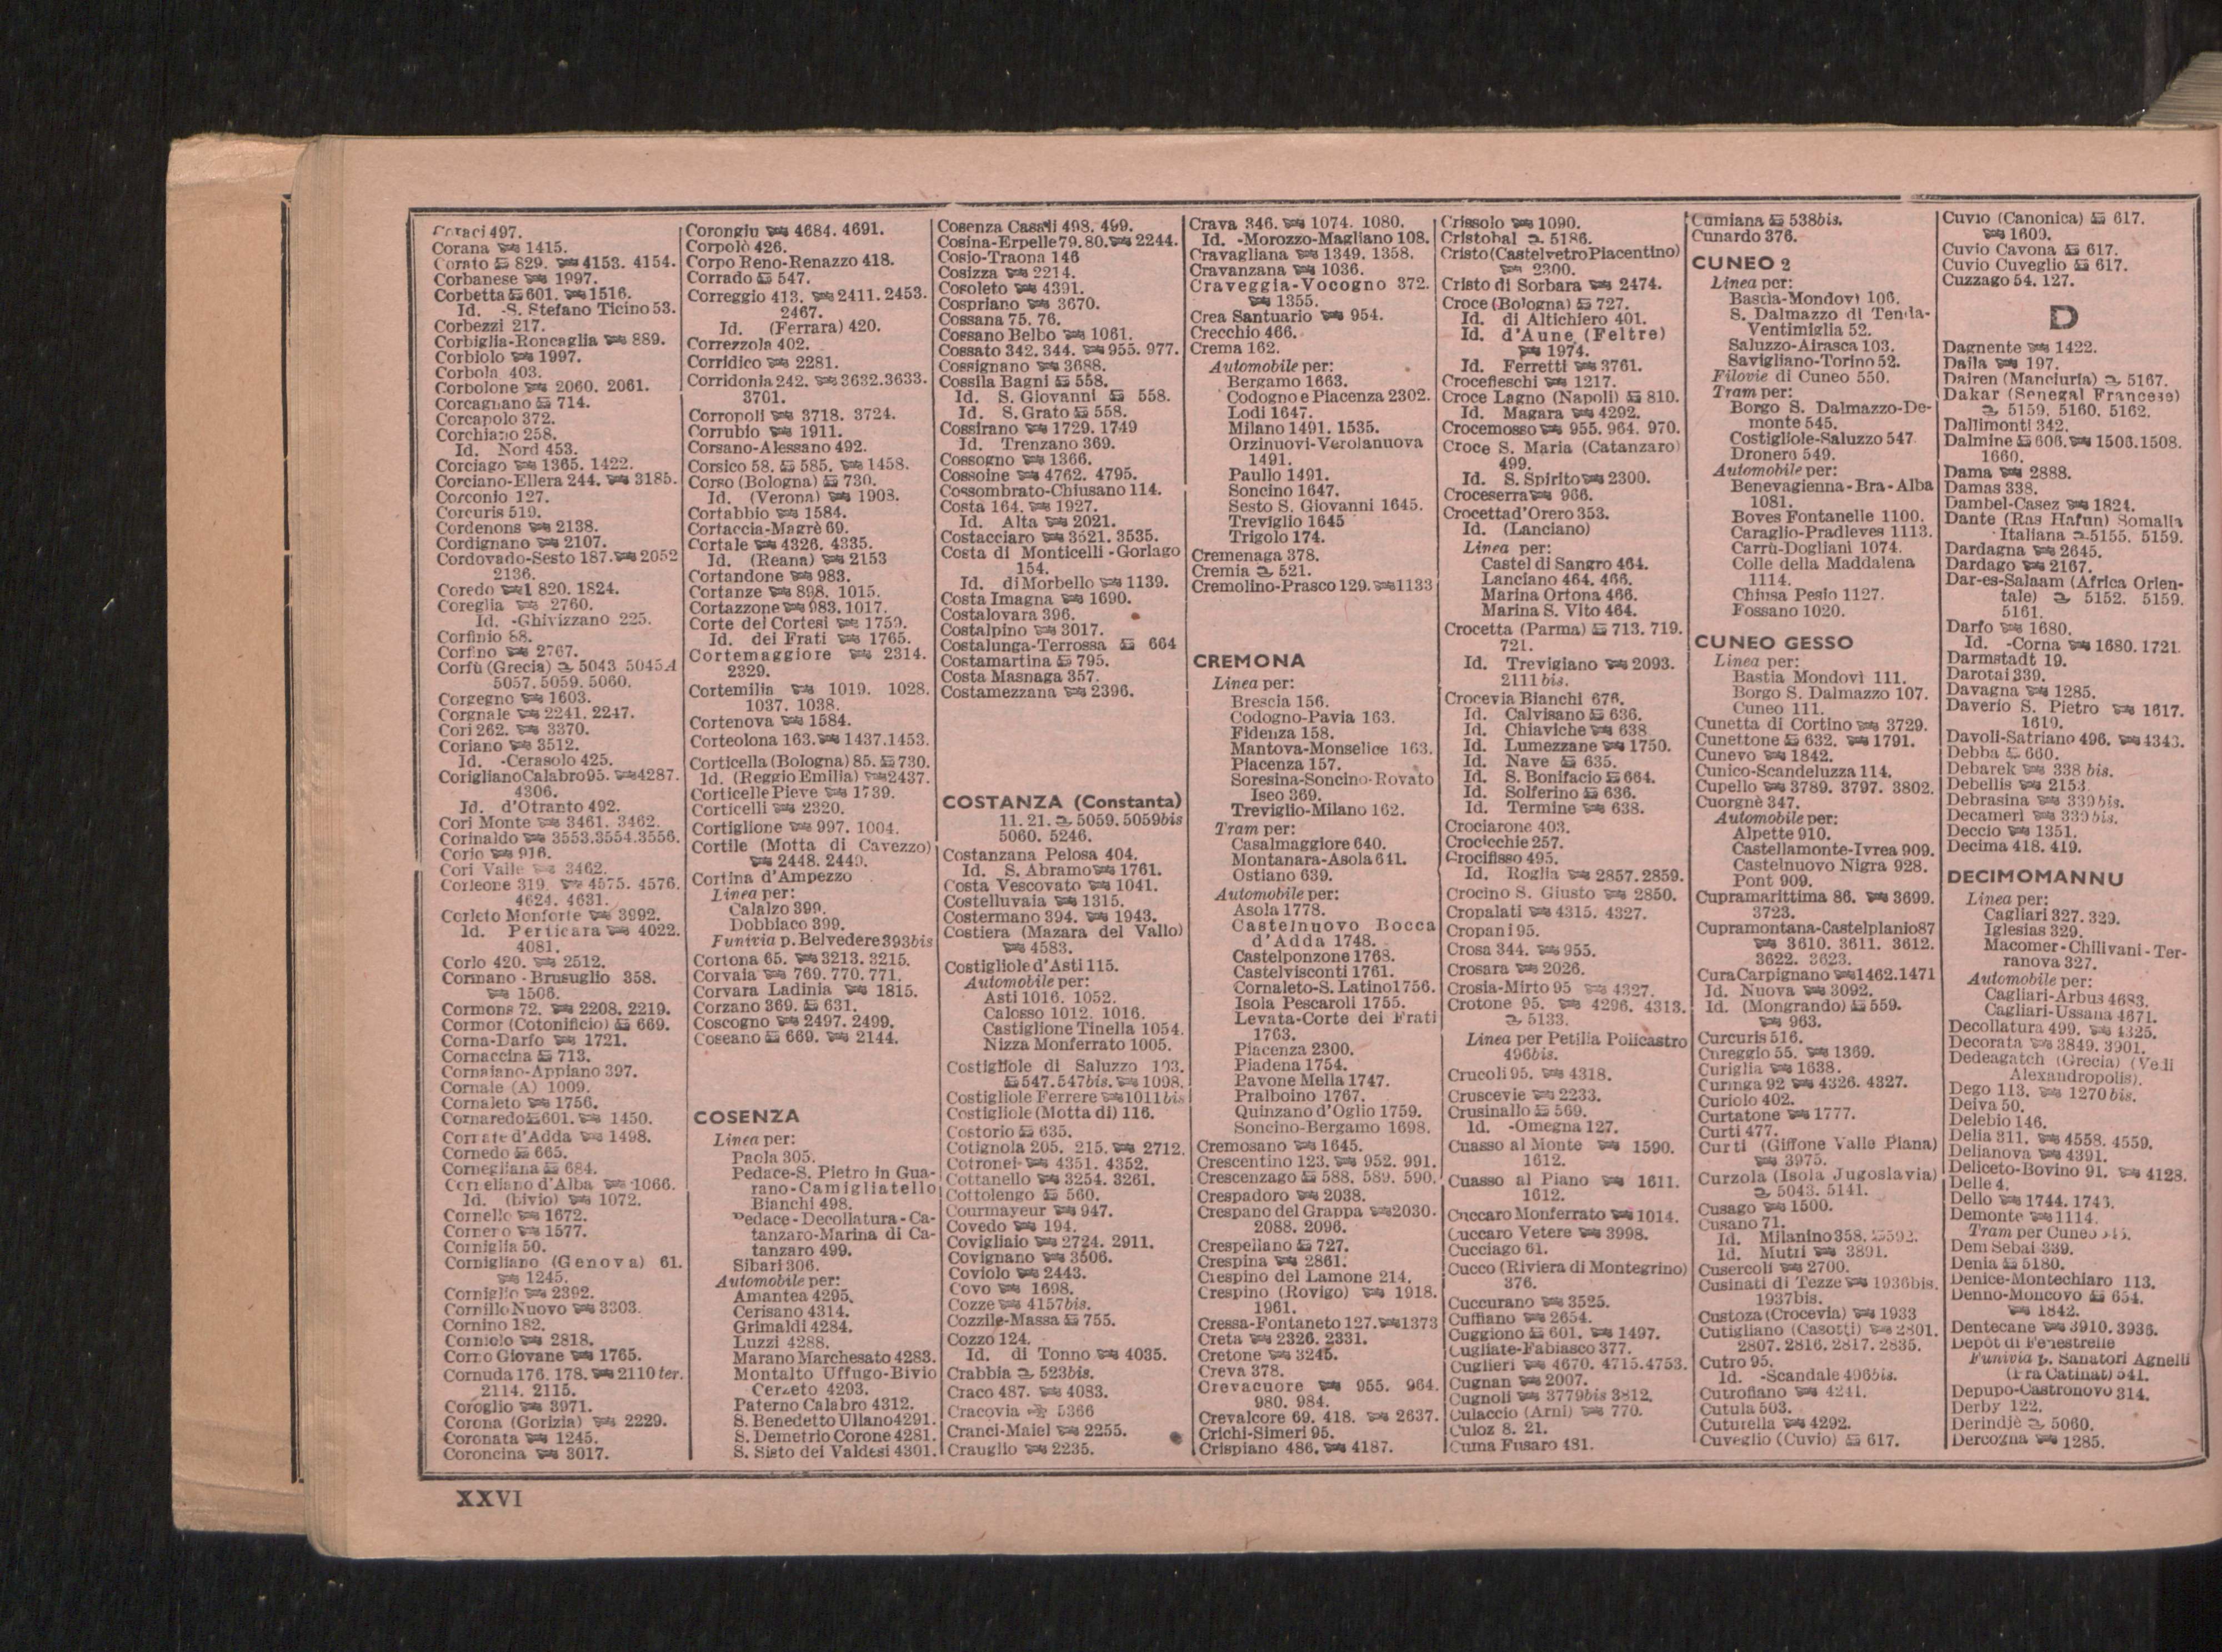 Coraci 497.
Corana 1415.
Corato 829. 4153. 4154.
Corbanese 1997.
Corbetta 601. 1516.
Id. -S. Stefano Ticino 53.
Corbezzi 217.
Corbiglia-Roncaglia 889.
Corbiolo 1997.
Corbola 403.
Corbolone 2060. 2061.
Corcagnano 714.
Corcapolo 372.
Corchiano 258.
Id. Nord 453.
Corciago 1365. 1422.
Corciano-Ellera 244. 3185.
Corconio 127.
Corcuris 519.
Cordenons 2138.
Cordignano 2107.
Cordovado-Sesto 187. 2052
2136.
Coredo 1 820. 1824.
Coreglia 2760.
Id. -Ghivizzano 225.
Corfinio 88.
Corfino 2767.
Corfù (Grecia) 5043 5045A
5057. 5059. 5060.
Corgegno 1603.
Corgnale 2241. 2247.
Cori 262. 3370.
Coriano 3512.
Id. -Cerasolo 425.
Corigliano Calabro 95. 4287.
4306.
Id. d'Otranto 492.
Cori Monte 3461. 3462.
Corinaldo 3553. 3554. 3556.
Corio 916.
Cori Valle 3462.
Corleone 319. 4575. 4576.
4624. 4631.
Corleto Monforte 3992.
Id. Perticara 4022.
4081.
Corlo 420. 2512.
Cormano - Brusuglio 358.
1506.
Cormons 72. 2208. 2219.
Cormor (Cotonificio) 669.
Corna-Darfo 1721.
Cornaccina 713.
Cornaiano-Appiano 397.
Cornale (A) 1009.
Cornaleto 1756.
Cornaredo 601. 1450.
Cornate d'Adda 1498.
Cornedo 665.
Cornegliana 684.
Corneliano d'Alba 1066.
Id. (bivio) 1072.
Cornello 1672.
Cornero 1577.
Corniglia 50.
Cornigliano (Genova) 61.
1245.
Corniglio 2392.
Cornillo Nuovo 3303.
Cornino 182.
Corniolo 2818.
Corno Giovane 1765.
Cornuda 176. 178. 2110 ter.
2114. 2115.
Coroglio 3971.
Corona (Gorizia) 2229.
Coronata 1245.
Coroncina 3017.
Corongiu 4684. 4691.
Corpolò 426.
Corpo Reno-Renazzo 418.
Corrado 547.
Correggio 413. 2411. 2453.
2467.
Id. (Ferrara) 420.
Correzzola 402.
Corridico 2281.
Corridonia 242. 3632. 3633.
3701.
Corropoli 3718. 3724.
Corrubio 1911.
Corsano-Alessano 492.
Corsico 58. 585. 1458.
Corso (Bologna) 730.
Id. (Verona) 1908.
Cortabbio 1584.
Cortaccia-Magrè 69.
Cortale 4326. 4335.
Id. (Reana) 2153
Cortandone 983.
Cortanze 898. 1015.
Cortazzone 983. 1017.
Corte dei Cortesi 1759.
Id. dei Frati 1765.
Cortemaggiore 2314.
2329.
Cortemilia 1019. 1028.
1037. 1038.
Cortenova 1584.
Corteolona 163. 1437. 1453.
Corticella (Bologna) 85. 730.
Id. (Reggio Emilia) 2437.
Corticelle Pieve 1739.
Corticelli 2320.
Cortiglione 997. 1004.
Cortile (Motta di Cavezzo)
2448. 2449.
Cortina d'Ampezzo
Linea per:
Calalzo 399.
Dobbiaco 399.
Funivia p. Belvedere 393bis
Cortona 65. 3213. 3215.
Corvaia 769. 770. 771.
Corvara Ladinia 1815.
Corzano 369. 631.
Coscogno 2497. 2499.
Coseano 669. 2144.
COSENZA
Linea per:
Paola 305.
Pedace-S. Pietro in Gua-
rano-Camigliatello
Bianchi 498.
Pedace - Decollatura - Ca-
tanzaro-Marina di Ca-
tanzaro 499.
Sibari 306.
Automobile per:
Amantea 4295.
Cerisano 4314.
Grimaldi 4284.
Luzzi 4288.
Marano Marchesato 4283.
Montalto Uffugo-Bivio
Cerzeto 4293.
Paterno Calabro 4312.
S. Benedetto Ullano 4291.
S. Demetrio Corone 4281.
S. Sisto dei Valdesi 4301.
Cosenza Casali 498. 499.
Cosina-Erpelle 79. 80. 2244.
Cosio-Traona 146
Cosizza 2214.
Cosoleto 4391.
Cospriano 3670.
Cossana 75. 76.
Cossano Belbo 1061.
Cossato 342. 344. 955. 977.
Cossignano 3688.
Cossila Bagni 558.
Id. S. Giovanni 558.
Id. S. Grato 558.
Cossirano 1729. 1749
Id. Trenzano 369.
Cossogno 1366.
Cossoine 4762. 4795.
Cossombrato-Chiusano 114.
Costa 164. 1927.
Id. Alta 2021.
Costacciaro 3521. 3535.
Costa di Monticelli - Gorlago
154.
Id. di Morbello 1139.
Costa Imagna 1690.
Costalovara 396.
Costalpino 3017.
Costalunga-Terrossa 664
Costamartina 795.
Costa Masnaga 357.
Costamezzana 2396.
COSTANZA (Constanta)
11. 21. 5059. 5059bis
5060. 5246.
Costanzana Pelosa 404.
Id. S. Abramo 1761.
Costa Vescovato 1041.
Costelluvaia 1315.
Costermano 394. 1943.
Costiera (Mazara del Vallo)
4583.
Costigliole d'Asti 115.
Automobile per:
Asti 1016. 1052.
Calosso 1012. 1016.
Castiglione Tinella 1054.
Nizza Monferrato 1005.
Costigliole di Saluzzo 103.
547. 547bis. 1098.
Costigliole Ferrere 1011bis
Costigliole (Motta di) 116.
Costorio 635.
Cotignola 205. 215. 2712.
Cotronei 4351. 4352.
Cottanello 3254. 3261.
Cottolengo 560.
Courmayeur 947.
Covedo 194.
Covigliaio 2724. 2911.
Covignano 3506.
Coviolo 2443.
Covo 1698.
Cozze 4157bis.
Cozzile-Massa 755.
Cozzo 124.
Id. di Tonno 4035.
Crabbia 523bis.
Craco 487. 4083.
Cracovia 5366
Cranci-Maiel 2255.
Crauglio 2235.
Crava 346. 1074. 1080.
Id. -Morozzo-Magliano 108.
Cravagliana 1349. 1358.
Cravanzana 1036.
Craveggia-Vocogno 372.
1355.
Crea Santuario 954.
Crecchio 466.
Crema 162.
Automobile per:
Bergamo 1663.
Codogno e Piacenza 2302.
Lodi 1647.
Milano 1491. 1535.
Orzinuovi-Verolanuova
1491.
Paullo 1491.
Soncino 1647.
Sesto S. Giovanni 1645.
Treviglio 1645
Trigolo 174.
Cremenaga 378.
Cremia 521.
Cremolino-Prasco 129. 1133
CREMONA
Linea per:
Brescia 156.
Codogno-Pavia 163.
Fidenza 158.
Mantova-Monselice 163.
Piacenza 157.
Soresina-Soncino-Rovato
Iseo 369.
Treviglio-Milano 162.
Tram per:
Casalmaggiore 640.
Montanara-Asola 641.
Ostiano 639.
Automobile per:
Asola 1778.
Castelnuovo Bocca
d'Adda 1748.
Castelponzone 1768.
Castelvisconti 1761.
Cornaleto-S. Latino 1756.
Isola Pescaroli 1755.
Levata-Corte dei Frati
1763.
Piacenza 2300.
Piadena 1754.
Pavone Mella 1747.
Pralboino 1767.
Quinzano d'Oglio 1759.
Soncino-Bergamo 1698.
Cremosano 1645.
Crescentino 123. 952. 991.
Crescenzago 588. 589. 590.
Crespadoro 2038.
Crespano del Grappa 2030.
2088. 2096.
Crespellano 727.
Crespina 2861.
Crespino del Lamone 214.
Crespino (Rovigo) 1918.
1961.
Cressa-Fontaneto 127. 1373
Creta 2326. 2331.
Cretone 3245.
Creva 378.
Crevacuore 955. 964.
980. 984.
Crevalcore 69. 418. 2637.
Crichi-Simeri 95.
Crispiano 486. 4187.
Crissolo 1090.
Cristobal 5186.
Cristo (Castelvetro Piacentino)
2300.
Cristo di Sorbara 2474.
Croce (Bologna) 727.
Id. di Altichiero 401.
Id. d'Aune (Feltre)
1974.
Id. Ferretti 3761.
Crocefieschi 1217.
Croce Lagno (Napoli) 810.
Id. Magara 4292.
Crocemosso 955. 964. 970.
Croce S. Maria (Catanzaro)
499.
Id. S. Spirito 2300.
Croceserra 966.
Crocetta d'Orero 353.
Id. (Lanciano)
Linea per:
Castel di Sangro 464.
Lanciano 464. 466.
Marina Ortona 466.
Marina S. Vito 464.
Crocetta (Parma) 713. 719.
721.
Id. Trevigiano 2093.
2111 bis.
Crocevia Bianchi 676.
Id. Calvisano 636.
Id. Chiaviche 638
Id. Lumezzane 1750.
Id. Nave 635.
Id. S. Bonifacio 664.
Id. Solferino 636.
Id. Termine 638.
Crociarone 403.
Crocicchie 257.
Crocifisso 495.
Id. Roglia 2857. 2859.
Crocino S. Giusto 2850.
Cropalati 4315. 4327.
Cropani 95.
Crosa 344. 955.
Crosara 2026.
Crosia-Mirto 95 4327.
Crotone 95. 4296. 4313.
5133.
Linea per Petilia Policastro
496bis.
Crucoli 95. 4318.
Cruscevie 2233.
Crusinallo 569.
Id. -Omegna 127.
Cuasso al Monte 1590.
1612.
Cuasso al Piano 1611.
1612.
Cuccaro Monferrato 1014.
Cuccaro Vetere 3998.
Cucciago 61.
Cucco (Riviera di Montegrino)
376.
Cuccurano 3525.
Cuffiano 2654.
Cuggiono 601. 1497.
Cugliate-Fabiasco 377.
Cuglieri 4670. 4715. 4753.
Cugnan 2007.
Cugnoli 3779bis 3812.
Culaccio (Arni) 770.
Culoz 8. 21.
Cuma Fusaro 481.
Cumiana 538bis.
Cunardo 376.
CUNEO 2
Linea per:
Bastia-Mondovì 106.
S. Dalmazzo di Tenda-
Ventimiglia 52.
Saluzzo-Airasca 103.
Savigliano-Torino 52.
Filovie di Cuneo 550.
Tram per:
Borgo S. Dalmazzo-De-
monte 545.
Costigliole-Saluzzo 547
Dronero 549.
Automobile per:
Benevagienna-Bra-Alba
1081.
Boves Fontanelle 1100.
Caraglio-Pradleves 1113.
Carrù-Dogliani 1074.
Colle della Maddalena
1114.
Chiusa Pesio 1127.
Fossano 1020.
CUNEO GESSO
Linea per:
Bastia Mondovì 111.
Borgo S. Dalmazzo 107.
Cuneo 111.
Cunetta di Cortino 3729.
Cunettone 632. 1791.
Cunevo 1842.
Cunico-Scandeluzza 114.
Cupello 3789. 3797. 3802.
Cuorgnè 347.
Automobile per:
Alpette 910.
Castellamonte-Ivrea 909.
Castelnuovo Nigra 928.
Pont 909.
Cupramarittima 86. 3699.
3723.
Cupramontana-Castelplanio 87
3610. 3611. 3612.
3622. 3623.
Cura Carpignano 1462. 1471
Id. Nuova 3092.
Id. (Mongrando) 559.
963.
Curcuris 516.
Cureggio 55. 1369.
Curiglia 1638.
Curinga 92 4326. 4327.
Curiolo 402.
Curtatone 1777.
Curti 477.
Curti (Giffone Valle Piana)
3975.
Curzola (Isola Jugoslavia)
5043. 5141.
Cusago 1500.
Cusano 71.
Id. Milanino 358. 592.
Id. Mutri 3891.
Cusercoli 2700.
Cusinati di Tezze 1936bis.
1937bis.
Custoza (Crocevia) 1933
Cutigliano (Casotti) 2801.
2807. 2816. 2817. 2835.
Cutro 95.
Id. -Scandale 496bis.
Cutrofiano 4241.
Cutula 503.
Cuturella 4292.
Cuveglio (Cuvio) 617.
Cuvio (Canonica) 617.
1609.
Cuvio Cavona 617.
Cuvio Cuveglio 617.
Cuzzago 54. 127.
D
Dagnente 1422.
Daila 197.
Dairen (Manciuria) 5167.
Dakar (Senegal Francese)
5159. 5160. 5162.
Dallimonti 342.
Dalmine 606. 1506. 1508.
1660.
Dama 2888.
Damas 338.
Dambel-Casez 1824.
Dante (Ras Hafun) Somalia
Italiana 5155. 5159.
Dardagna 2645.
Dardago 2167.
Dar-es-Salaam (Africa Orien-
tale) 5152. 5159.
5161.
Darfo 1680.
Id. -Corna 1680. 1721.
Darmstadt 19.
Darotai 339.
Davagna 1285.
Daverio S. Pietro 1617.
1619.
Davoli-Satriano 496. 4343.
Debba 660.
Debarek 338 bis.
Debellis 2153
Debrasina 339bis.
Decameri 339bis.
Deccio 1351.
Decima 418. 419.
DECIMOMANNU
Linea per:
Cagliari 327. 329.
Iglesias 329.
Macomer-Chilivani-Ter-
ranova 327.
Automobile per:
Cagliari-Arbus 4683.
Cagliari-Ussana 4671.
Decollatura 499. 4325.
Decorata 3849. 3901.
Dedeagatch (Grecia) (Vedi
Alexandropolis).
Dego 113. 1270bis.
Deiva 50.
Delebio 146.
Delia 311. 4558. 4559.
Delianova 4391.
Deliceto-Bovino 91. 4128.
Delle 4.
Dello 1744. 1743.
Demonte 1114.
Tram per Cuneo
Dem Sebai 339.
Denia 5180.
Denice-Montechiaro 113.
Denno-Moncovo 654.
1842.
Dentecane 3910. 3936.
Depôt di Fenestrelle
Funivia p. Sanatori Agnelli
(Pra Catinat) 541.
Depupo-Castronovo 314.
Derby 122.
Derindjè 5060.
Dercogna 1285.
XXVI